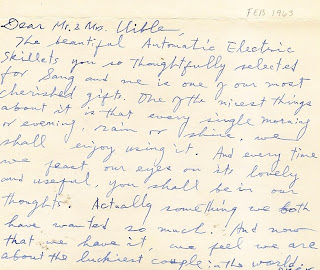 FEB 1963
Dear Mr. & Mrs. Uible,
The beautiful Automatic Electric
Skillets you so thoughtfully selected
for Sang and me is one of our most
cherished gifts. One of the nicest things
about it is that every single morning
or evening, rain or shine, we
shall enjoy using it. And every time
we feast our eyes on its lovely
and useful, you shall be in our
thoughts. Actually something we both
have wanted so much. And now
that we have it, we feel we are
about the luckiest couple in the world.